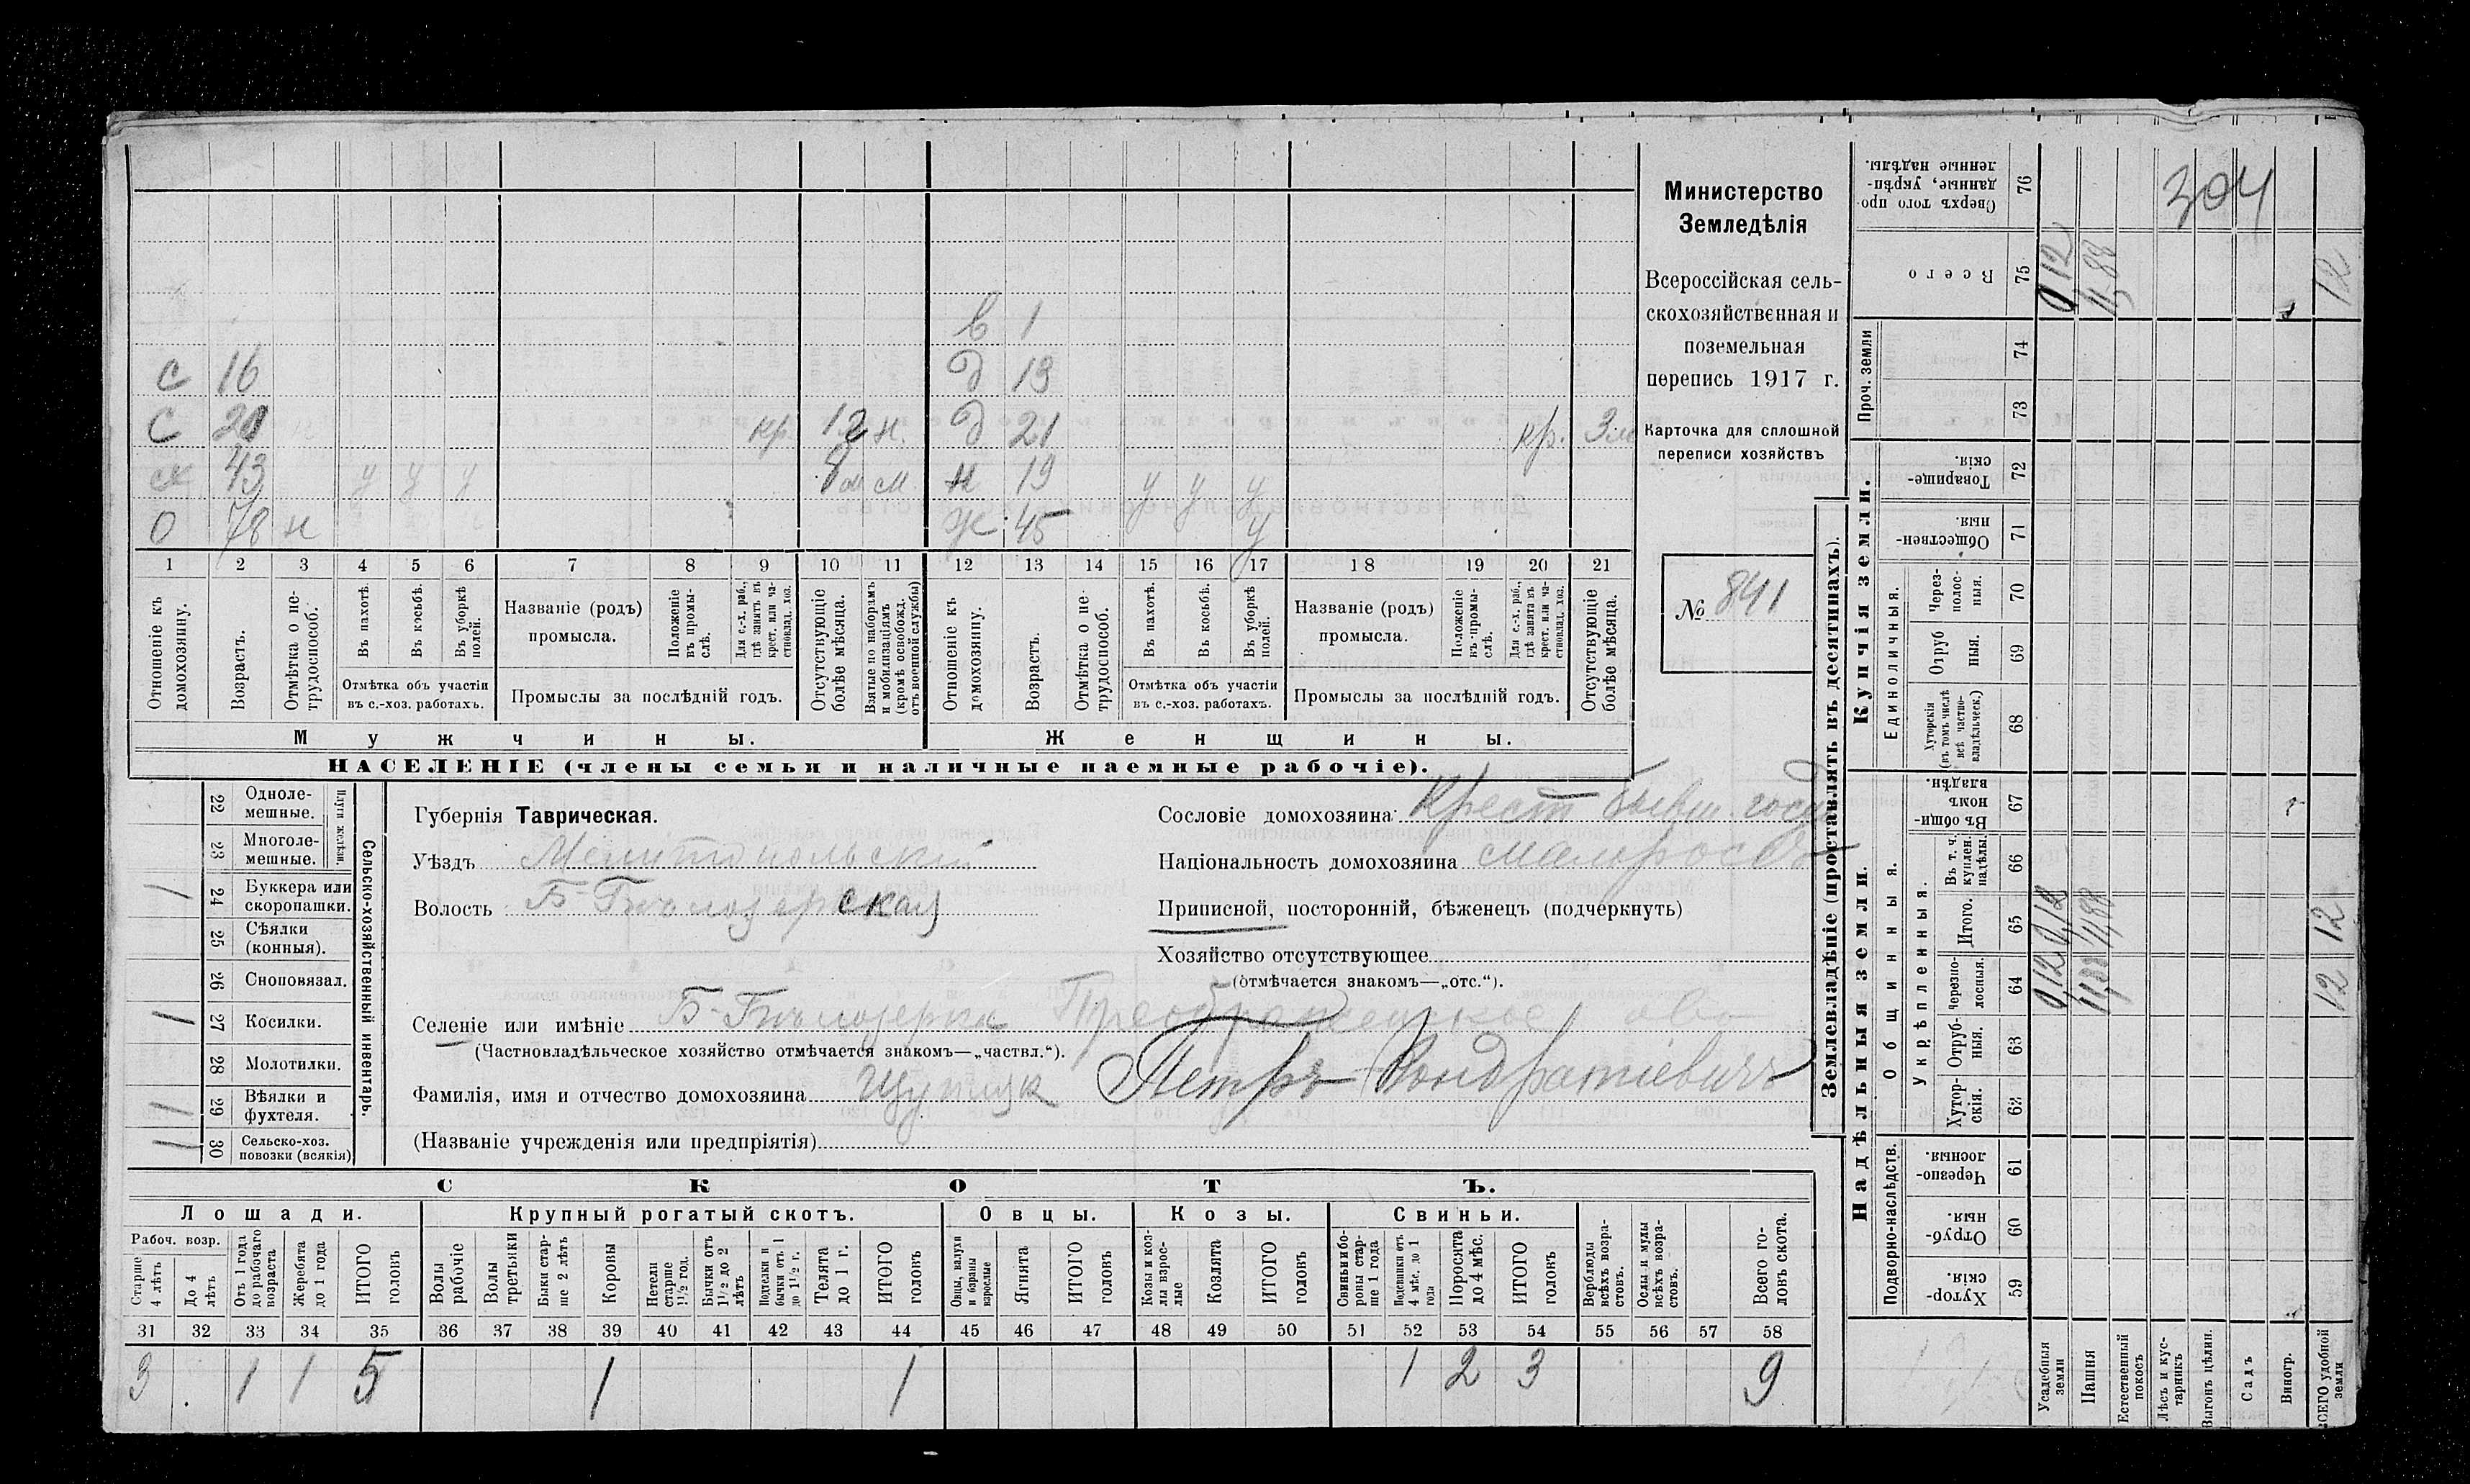 в 1
с 16 д 13
с 20 кр 12 н. д 21 кр. 3м
43 у у у 8м м. н 19 у у у
о 78 н ж 45 у
1 2 3 4 5 6 7 8 9 10 11 12 13 14 15 16 17 18 19 20 21
Отношеніе къ домохозяину.
Возрастъ.
Отмѣтка о не-трудоспособ.
Въ пахотѣ.
Въ косьбѣ.
Въ уборкѣ полей.
Отмѣтка объ участіи въ с.-хоз. работахъ.
Названіе (родъ) промысла.
Положеніе въ промы-слѣ.
Для с.-х. раб., гдѣ занятъ въ крест. или ча-стновлад. хоз.
Промыслы за послѣдній годъ.
Отсутствующіе болѣе мѣсяца.
Взятые по наборамъ и мобилизаціямъ (кромѣ освобожд. отъ военной службы)
Отношеніе къ домохозяину.
Возрастъ.
Отмѣтка о не-трудоспособ.
Въ пахотѣ.
Въ косьбѣ.
Въ уборкѣ полей.
Отмѣтка объ участіи въ с.-хоз. работахъ.
Названіе (родъ) промысла.
Положеніе въ промы-слѣ.
Для с.-х. раб., гдѣ занята въ крест. или ча-стновлад. хоз.
Промыслы за послѣдній годъ.
Отсутствующіе болѣе мѣсяца.
Мужчины. Женщины.
НАСЕЛЕНІЕ (члены семьи и наличные наемные рабочіе).
Министерство
Земледѣлія
Всероссійская сель-
скохозяйственная и
поземельная
перепись 1917 г.
Карточка для сплошной
переписи хозяйствъ
№ 841
Сельско-хозяйственный инвентарь.
Плуги желѣзн.
22 Одноле-мешные.
23 Многоле-мешные.
1 24 Буккера или скоропашки.
25 Сѣялки (конныя).
26 Сноповязал.
1 27 Косилки.
28 Молотилки.
1 29 Вѣялки и фухтеля.
30 Сельско-хоз. повозки (всякія)
Губернія Таврическая.
Уѣздъ Мелитопольскій
Волость Б-Бѣлозерская
Сословіе домохозяина: Крест бывш. госуд
Национальность домохозяина малороссъ
Приписной, посторонній, бѣженецъ (подчеркнуть)
Хозяйство отсутствующее
(отмѣчается знакомъ—„отс.“).
Селеніе или имѣніе Б-Бѣлозерка
(Частновладѣльческое хозяйство отмѣчается знакомъ—„частвл.“).
Фамилія, имя и отчество домохозяина Петръ Кондратіевичъ
(Названіе учрежденія или предпріятія)
СКОТЪ.
Лошади. Крупный рогатый скотъ. Овцы. Козы. Свиньи.
Рабоч. возр.
Старше 4 лѣтъ
До 4 лѣтъ
Отъ 1 года до рабочаго возраста
Жеребята до 1 года
ИТОГО головъ
Волы рабочіе
Волы третьяки
Быки стар-ше 2 лѣтъ
Коровы
Нетели старше 1½ год.
Бычки отъ 1½ до 2 лѣтъ
Подтелки и бычки отъ 1 до 1½ г.
Телята до 1 г.
ИТОГО головъ
Овцы, валухи и бараны взрослые
Ягнята
ИТОГО головъ
Козы и коз-лы взрос-лые
Козлята
ИТОГО головъ
Свиньи и бо-ровы стар-ше 1 года
Подсвинки отъ 4 мѣс. до 1 года
Поросята до 4 мѣс.
ИТОГО головъ
Верблюды всѣхъ возра-стовъ.
Ослы и мулы всѣхъ возра-стовъ.
Всего го-ловъ скота.
31 32 33 34 35 36 37 38 39 40 41 42 43 44 45 46 47 48 49 50 51 52 53 54 55 56 57 58
3 1 1 5 1 1 1 2 3 9
Землевладѣніе (проставлять въ десятинахъ).
304
Сверхъ того про-данные, укрѣп-ленные надѣлы. 76
Всего 75 0,12 11,88 12
Проч. земли 74 73
Купчія земли.
Товарище-скія. 72
Обществен-ныя. 71
Единоличныя.
Через-полос-ныя. 70
Отруб ныя. 69
Хуторскія (въ томъ числѣ всѣ частно-владѣльческ.) 68
Надѣльныя земли.
Общинныя.
Въ общи-номъ владѣн. 67
Укрѣпленныя.
Въ т. ч. куплен. надѣлы. 66
Итого. 65 0,12 11,88 12
Черезпо-лосныя. 64 0,12 11,88 12
Отруб-ныя. 63
Хутор-скія. 62
Подворно-наслѣдств.
Черезпо-лосныя. 61
Отруб-ныя. 60
Хутор-скія. 59
Усадебныя земли
Пашня
Естественный покосъ
Лѣсъ и кус-тарникъ
Выгонъ цѣлин.
Садъ
Виногр.
ВСЕГО удобной земли